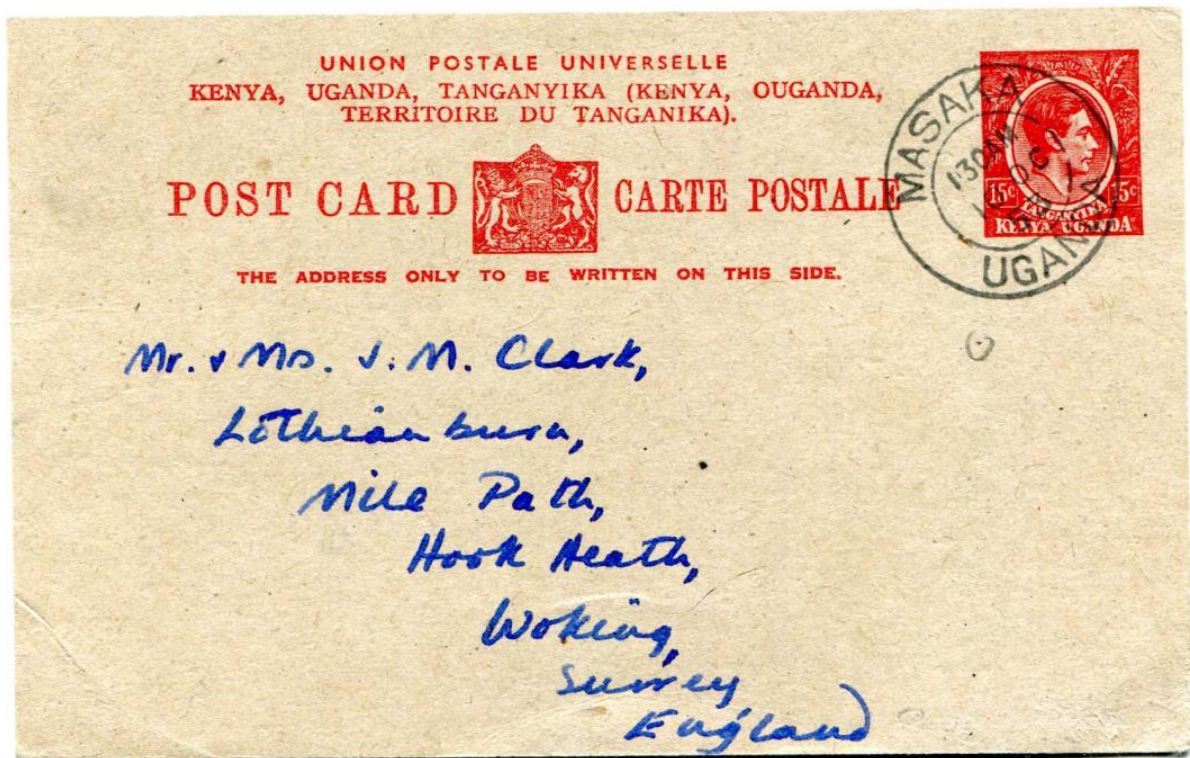 UNION POSTALE UNIVERSELLE
KENYA, UGANDA, TANGANYIKA (KENYA, OUGANDA,
TERRITOIRE DU TANGANIKA).
POST CARD CARTE POSTALE
THE ADDRESS ONLY TO BE WRITTEN ON THIS SIDE.
15c 15c
TANGANYIKA
KENYA UGANDA
MASAKA
UGANDA
Mr. & Mrs. J. M. Clark,
Lothianburn,
Mile Path,
Hook Heath,
Woking,
Surrey
England